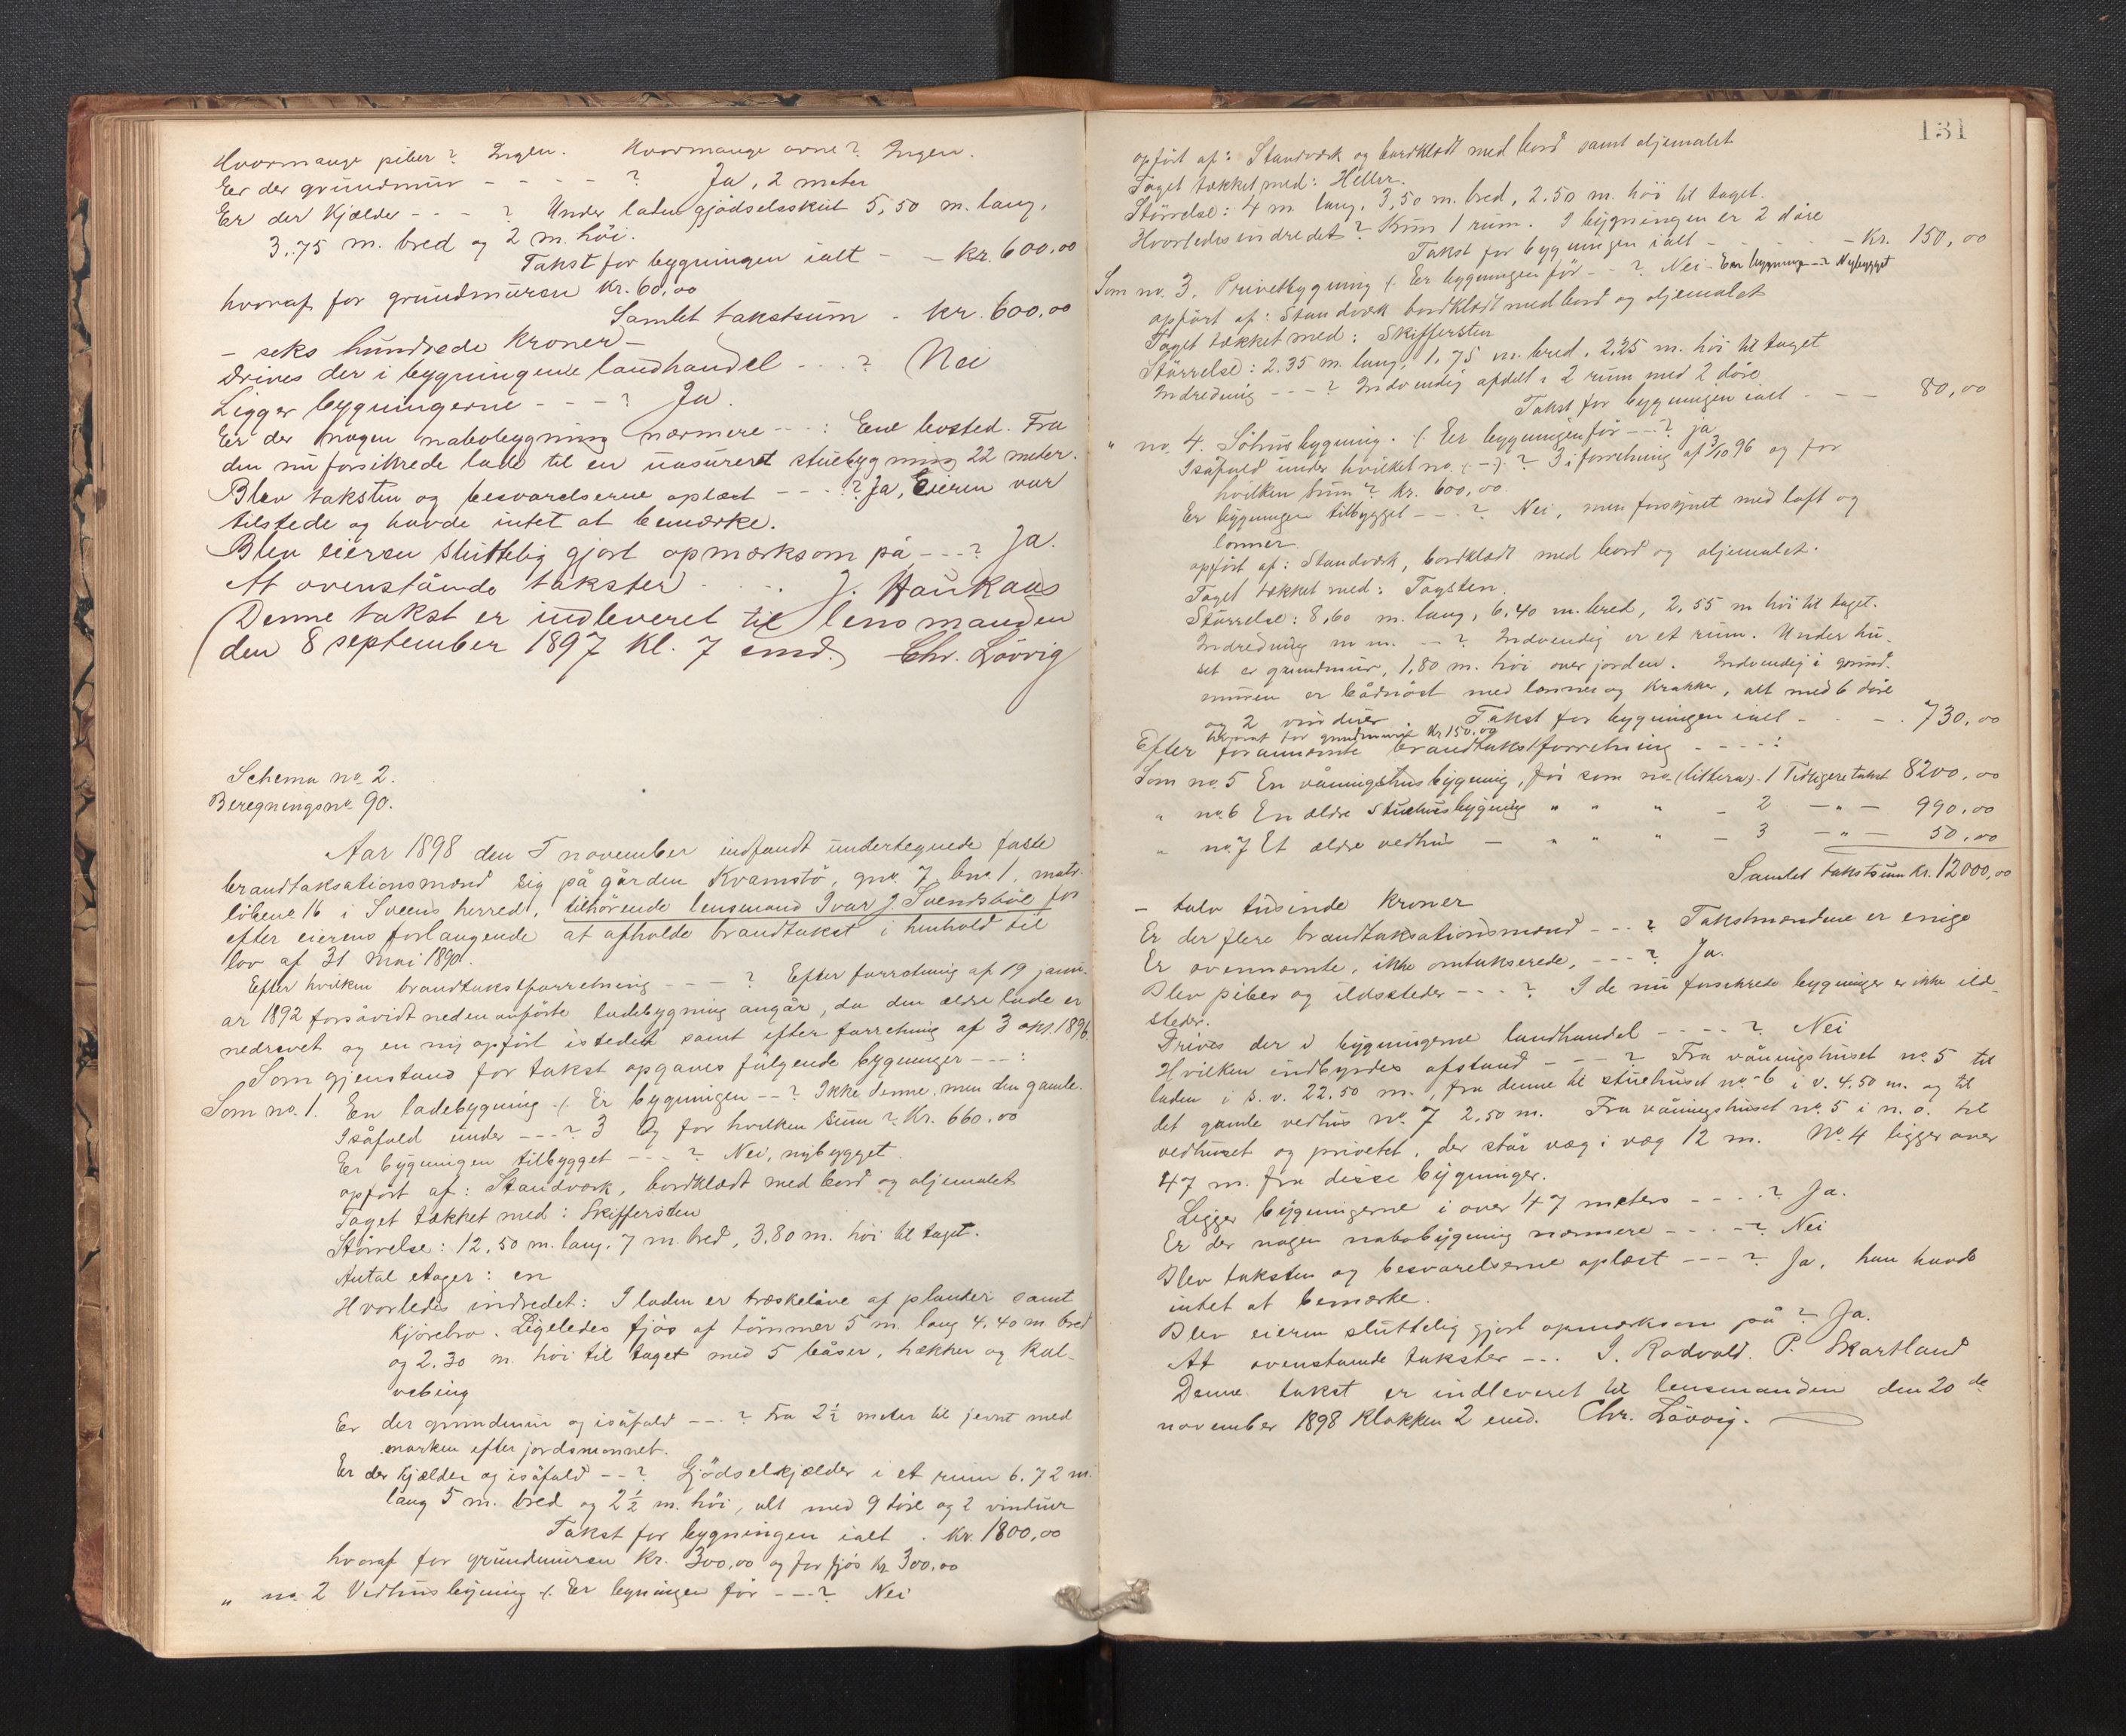 Hvormange piber? Ingen. Hvormange ovne? Ingen.
Er der grundmur - - - - ? Ja, 2 meter
Er der Kjælder - - - ? Under laden gjødselsskut 5,50 m. lang,
3.75 m. bred og 2 m. höi.
Takst for bygningen ialt - - Kr. 600,00
hvoraf for grundmuren Kr. 60,00
Samlet takstsum - kr. 600,00
- seks hundrede Kroner -
Drives der i bygningene landhandel - - - ? Nei
Ligger bygningerne - - - ? Ja.
Er der nogen nabobygning nærmere - - - : Ene bosted. Fra
den nu forsikrede lade til en uasureret stuebygning 22 meter.
Blev taksten og besvarelserne oplæst - - - ? Ja, Eieren var
tilstede og havde intet at bemærke.
Blev eieren sluttelig gjort opmærksom på - - - ? Ja.
At ovenstående takster - - - J. Haukaas
(Denne takst er indleveret til lensmanden
den 8 september 1897 Kl. 7 emd.) Chr. Lövvig
Schema no 2.
Beregningsno 90.
Aar 1898 den 5 november indfandt undertegnede faste
brandtaksationsmænd sig på gården Kvamstö, gno. 7, bno. 1, matr.
löbene 16 i Sveens herred, tilhörende lensmand Ivar J. Svendsböe for
efter eierens forlangende at afholde brandtakst i henhold til
lov af 31 Mai 1890.
Efter hvilken brandtakstforretning - - - ? Efter forretning af 19 janu-
ar 1892 forsåvidt neden anförte ladebygning angår, da den ældre lade er
nedrevet og en ny opfört istedet samt efter forretning af 3 okt. 1896.
Som gjenstand for takst opgaves fölgende bygninger - - - :
Som no. 1. En ladebygning ⁒ Er bygningen - - ? Ikke denne, men den gamle.
Isåfald under - - - ? 3 Og for hvilken sum? Kr. 660,00
Er bygningen tilbygget - - - ? Nei, nybygget.
opfört af: Standværk, bordklædt med bord og oljemalet
Taget tækket med: Skiffersten
Störrelse: 12,50 m. lang, 7 m. bred, 3,80 m. höi til taget.
Antal etager: en
Hvorledes indredet: I laden er træskelåve af planker samt
Kjörebro. Ligeledes fjös af tömmer 5 m. lang 4,40 m. bred
og 2,30 m. höi til taget med 5 båser, hækker og kal-
vebing
Er der grundmur og isåfald - - - ? Fra 2½ meter til jevnt med
marken efter jordsmonnet.
Er der Kjælder og isåfald - - ? Gjödselkjælder i et rum 6.72 m.
lang 5 m. bred og 2½ m. höi, alt med 9 döre og 2 vinduer
Takst for bygningen ialt . Kr. 1800,00
hvoraf for grundmuren Kr. 300,00 og for fjös Kr 300,00
" no. 2 Vedhusbygning ⁒ Er bygningen för - - - ? Nei
131
opfört af: Standværk og bordklædt med bord samt oljemalet
Taget tækket med: Heller.
Störrelse: 4 m. lang, 3,50 m. bred, 2.50 m. höi til taget.
Hvorledes indredet? Kun 1 rum. I bygningen er 2 döre
Takst for bygningen ialt - - - - Kr. 150,00
Som no. 3. Privetbygning ⁒ Er bygningen för - - ? Nei - Er bygningen - - ? Nybygget
opfört af: Standværk bordklædt med bord og oljemalet
Taget tækket med: Skiffersten
Störrelse: 2.35 m. lang, 1,75 m. bred, 2,25 m. höi til taget
Indredning - - - ? Indvendig afdelt i 2 rum med 2 döre
Takst for bygningen ialt - - - 80,00
" no. 4. Söhusbygning. ⁒ Er bygningen för - - ? ja
Isåfald under hvilket no. ( - )? 3 i forretning af 3/10 96 og for
hvilken sum? Kr. 600,00.
Er bygningen tilbygget - - - ? Nei, men forsynet med loft og
lemmer.
opfört af: Standværk, bordklædt med bord og oljemalet.
Taget tækket med: Tagsten.
Störrelse: 8,60 m. lang, 6,40 m. bred, 2,55 m höi til taget.
Indredning m. m. - - ? Indvendig er et rum. Under hu-
set er grundmur, 1,80 m. höi over jorden. Indvendig i grund-
muren er bådnöst med lemmer og krakker, alt med 6 döre
og 2 vinduer. Takst for bygningen ialt - - - 730,00
hvoraf for grundmuren Kr 150,00
Efter forannævnte brandtakstforretning - - - - :
Som no. 5 En våningshusbygning, för som no. (littera). 1 Tidligere takst 8200,00
" no. 6 En ældre stuehusbygning " " " - 2 - " - 990,00
" no. 7 Et ældre vedhus - " " " - 3 - " - 50,00
Samlet takstsum Kr. 12000,00
- tolv tusinde Kroner
Er der flere brandtaksationsmænd - - - ? Takstmændene er enige
Er ovennævnte, ikke omtakserede, - - - ? Ja.
Blev piber og ildsteder - - - ? I de nu forsikrede bygninger er ikke ild-
steder.
Drives der i bygningerne landhandel - - - - ? Nei
Hvilken indbyrdes afstand - - - ? Fra våningshuset no. 5 til
laden i s. v. 22,50 m., fra denne til stuehuset no. 6 i v. 4,50 m. og til
det gamle vedhus no. 7 2,50 m. Fra våningshuset no. 5 i n. o. til
vedhuset og privetet, der står væg i væg 12 m. No. 4 ligger over
47 m. fra disse bygninger.
Ligger bygningerne i over 47 meters - - - - ? Ja.
Er der nogen nabobygning nærmere - - - - ? Nei
Blev taksten og besvarelserne oplæst - - - ? Ja, han havde
intet at bemærke.
Blev eieren sluttelig gjort opmærksom på? Ja.
At ovenstående takster - - . I. Rødvold. P. Skartland
Denne takst er indleveret til lensmanden den 20 de
november 1898 Klokken 2 emd. Chr. Lövvig.